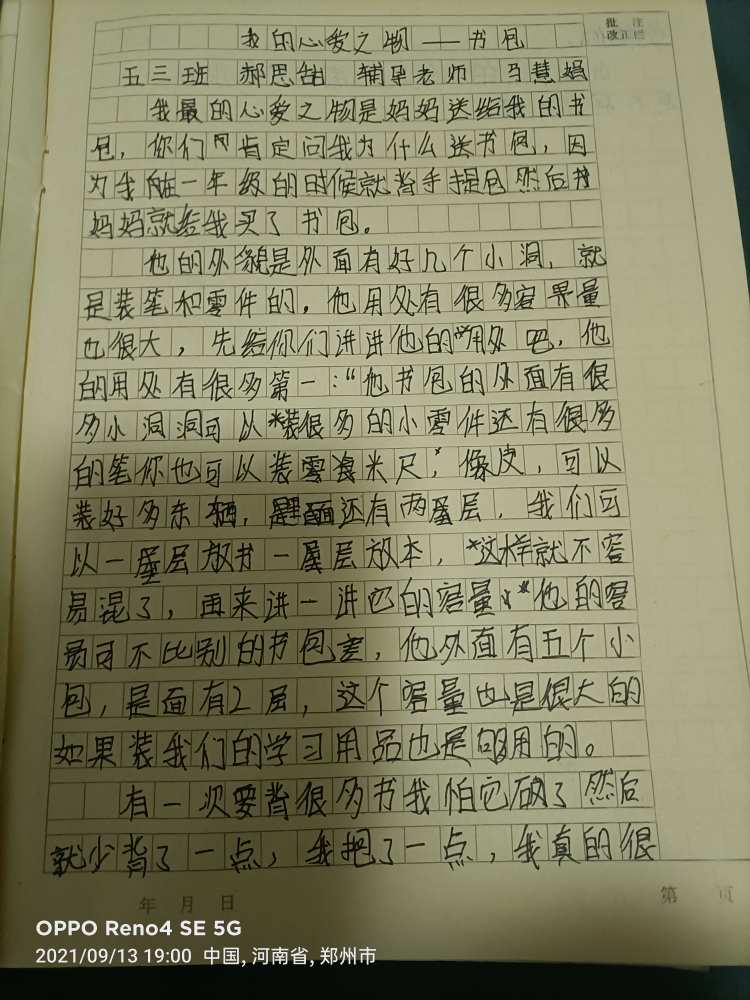 批 注
改正栏
我的心爱之物——书包
五三班 郝思甜 辅导老师 马慧娟
我最的心爱之物是妈妈送给我的书
包，你们肯定问我为什么送书包，因
为我在一年级的时候就背手提包然后
妈妈就给我买了书包。
他的外貌是外面有好几个小洞，就
是装笔和零件的，他用处有很多容果量
也很大，先给你们讲讲他的用处吧，他
的用处有很多第一：“他书包的外面有很
多小洞洞可以装很多的小零件还有很多
的笔你也可以装零食米尺，像皮，可以
装好多东西，里面还有两层，我们可
以一层放书一层放本，这样就不容
易混了，再来讲一讲它的容量，他的容
员可不比别的书包差，他外面有五个小
包，是面有2层，这个容量也是很大的
如果装我们的学习用品也是够用的。
有一次要背很多书我怕它破了然后
就少背了一点，我把了一点，我真的很
年 月 日
第 页
OPPO Reno4 SE 5G
2021/09/13 19:00 中国,河南省,郑州市